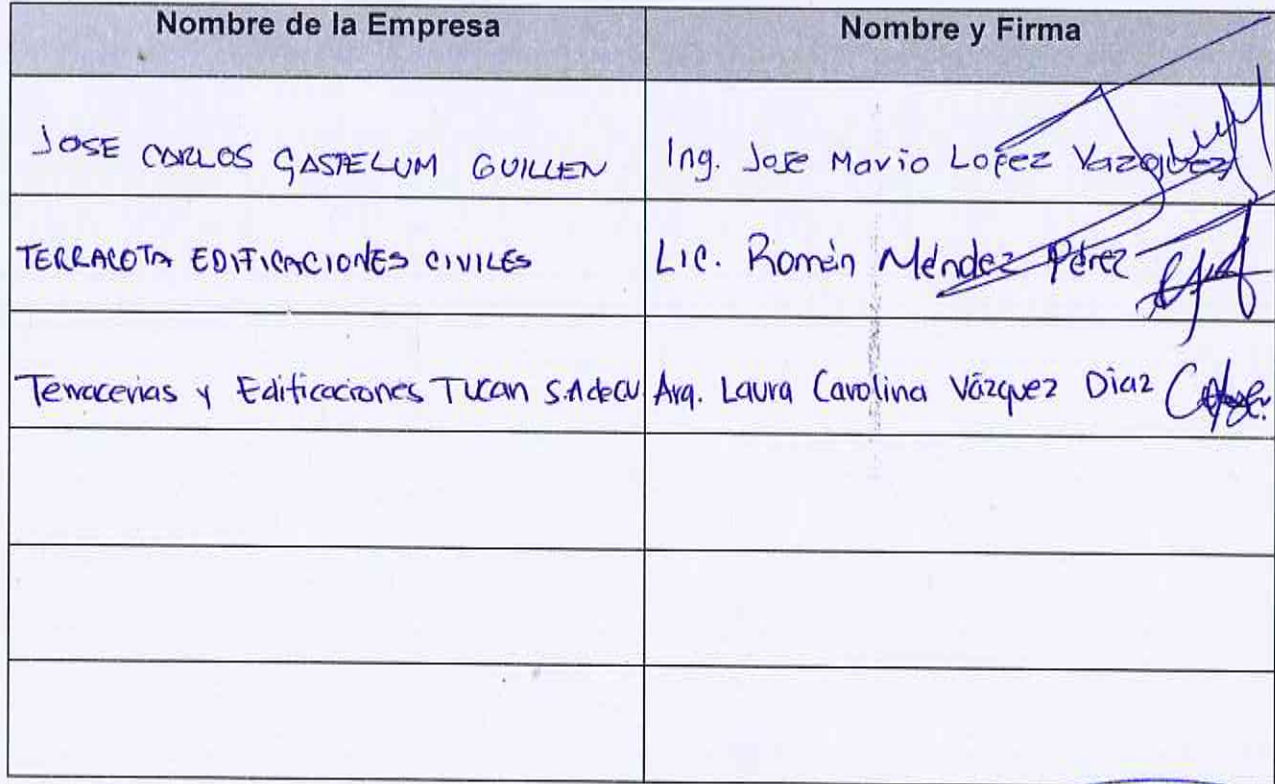 Nombre de la Empresa Nombre y Firma
JOSE CARLOS GASTELUM GUILLEN Ing. Jose Mario Lopez Vazquez
TERRACOTA EDIFICACIONES CIVILES Lic. Román Méndez Pérez
Terracerias y Edificaciones TUCAN S.A de CV Arq. Laura Carolina Vázquez Diaz